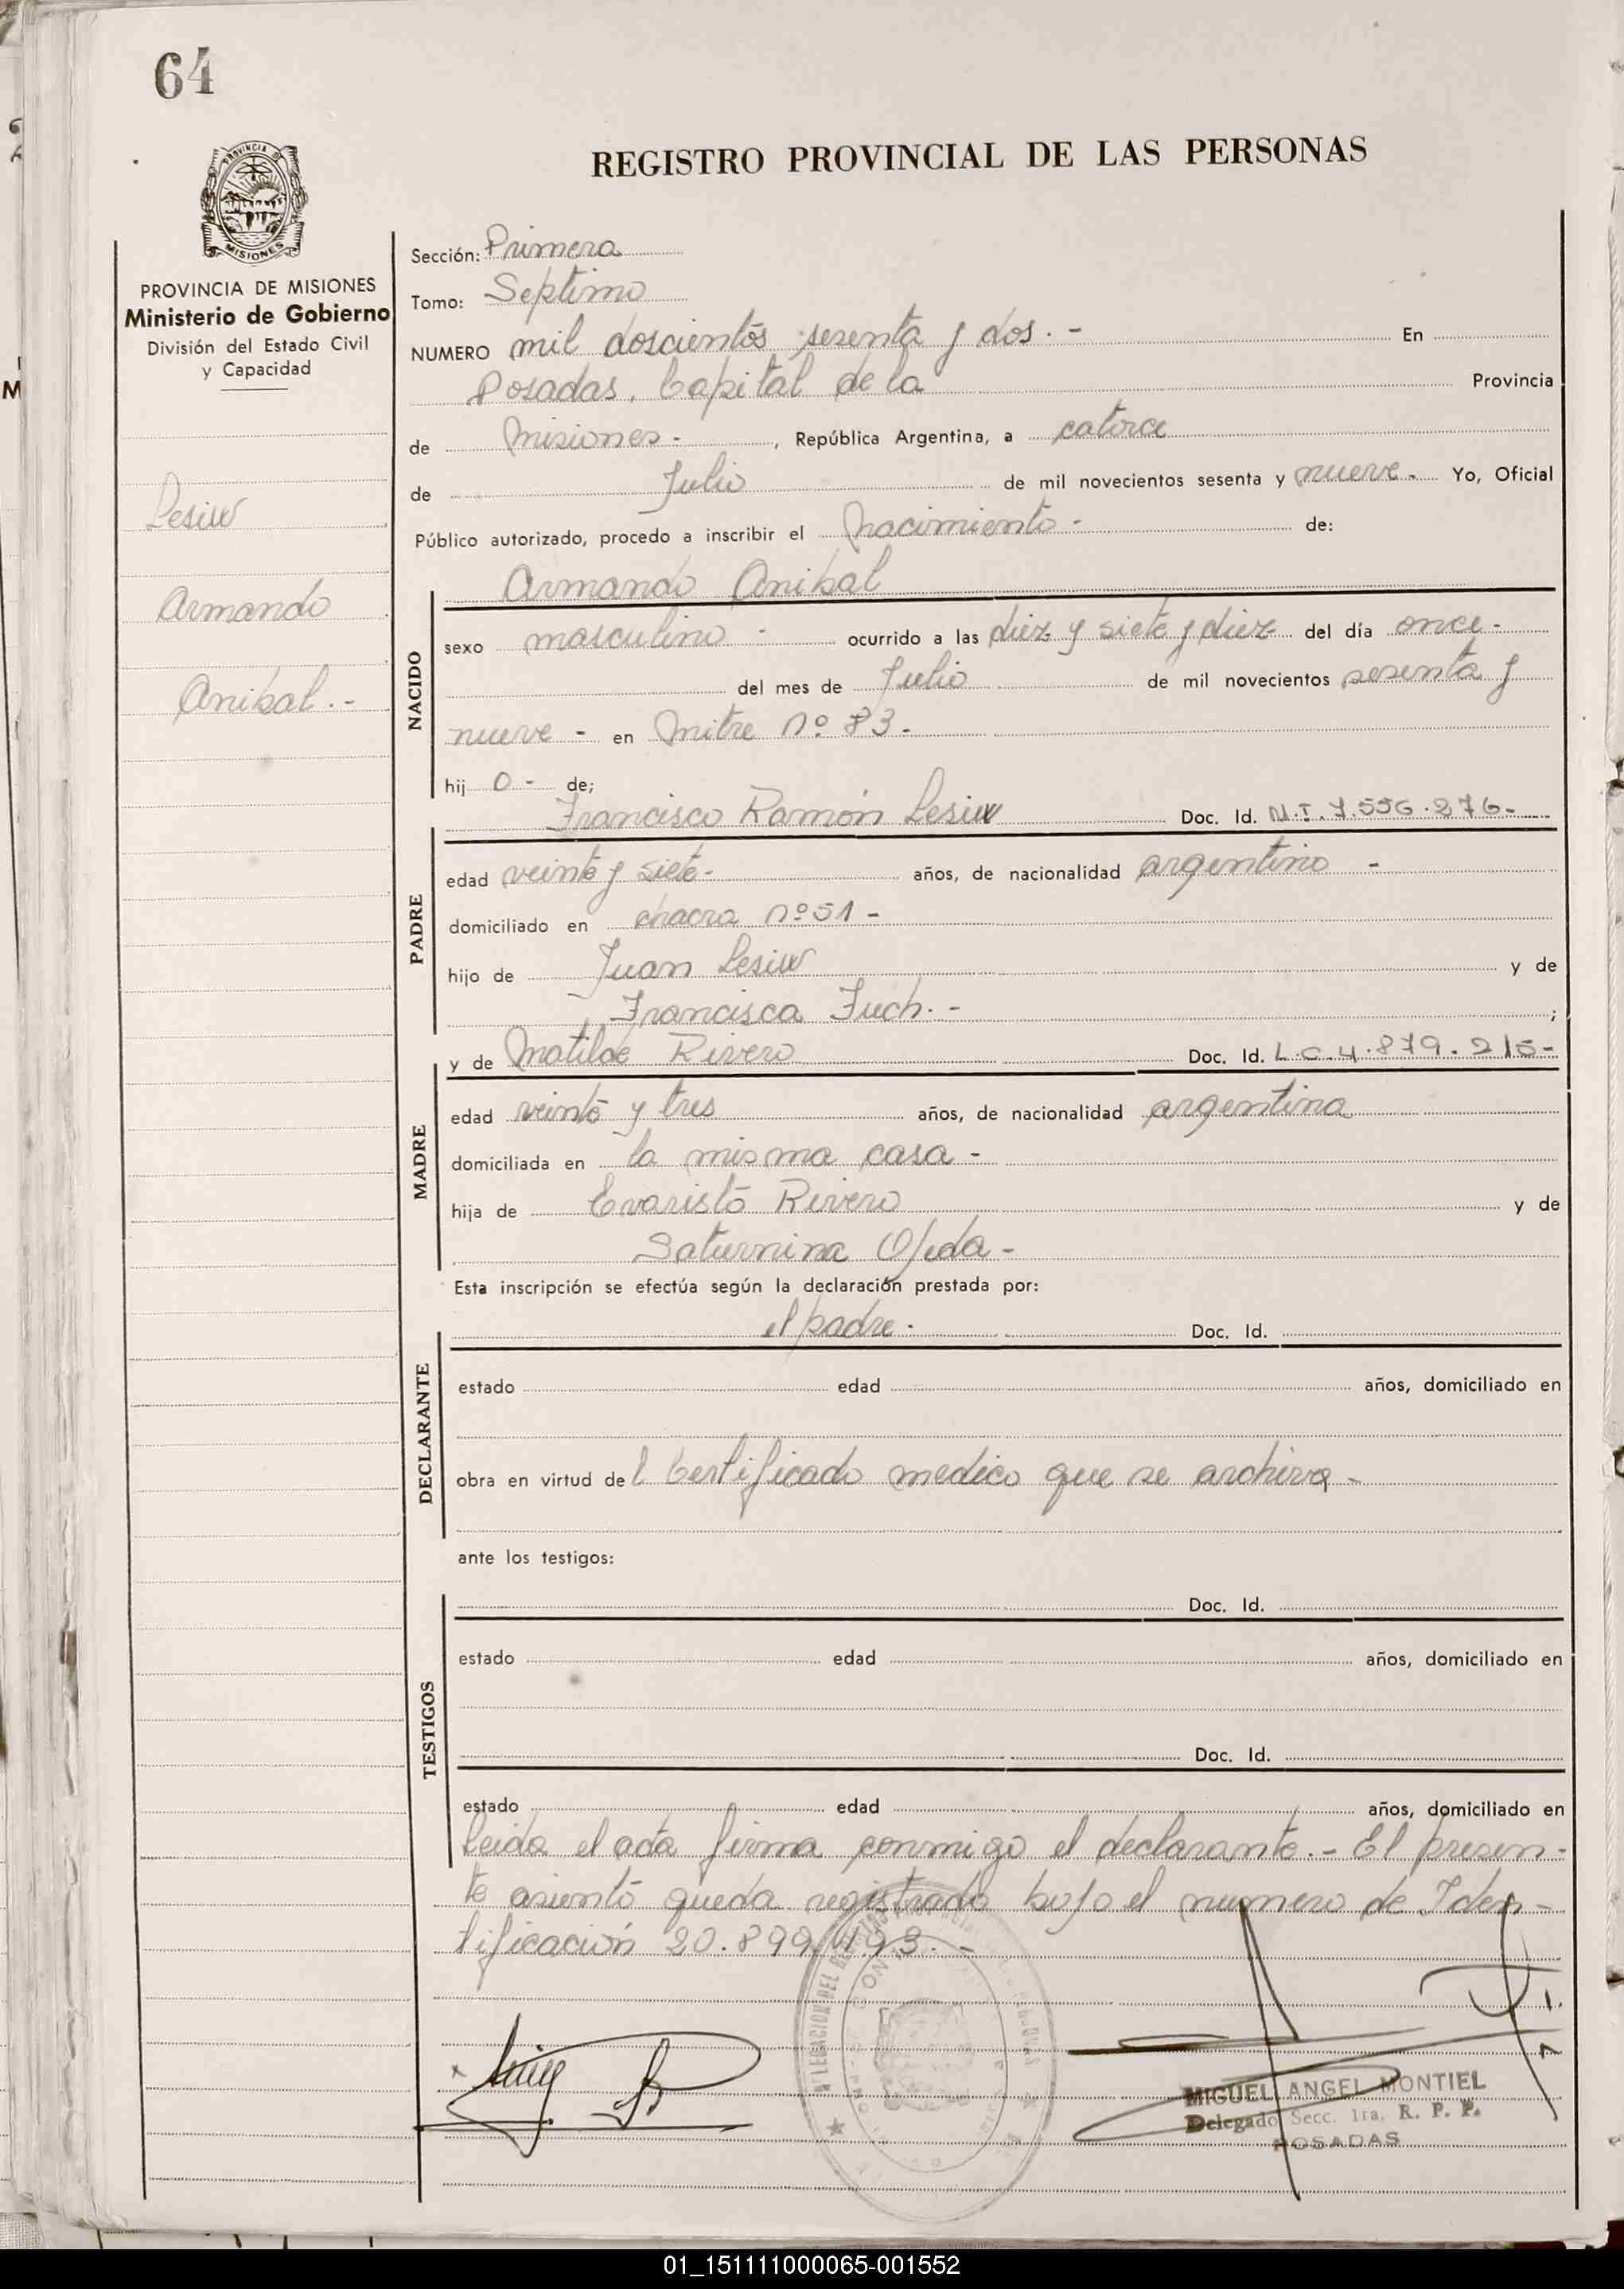 64
REGISTRO PROVINCIAL DE LAS PERSONAS
PROVINCIA DE
MISIONES
PROVINCIA DE MISIONES
Ministerio de Gobierno
División del Estado Civil
y Capacidad
Lesiw
Armando
Anibal.-
Sección: Primera
Tomo: Septimo
NUMERO mil doscientos sesenta y dos.- En
Posadas, Capital de la Provincia
de Misiones-, República Argentina, a catorce
de Julio de mil novecientos sesenta y nueve-. Yo, Oficial
Público autorizado, procedo a inscribir el Nacimiento- de:
Armando Anibal
NACIDO
sexo masculino- ocurrido a las diez y siete y diez del día once-
del mes de Julio de mil novecientos sesenta y
nueve- en Mitre Nº 83-
hij o- de;
Francisco Ramón Lesiw Doc. Id. M.I. 7.556.276-
PADRE
edad veinte y siete- años, de nacionalidad argentino-
domiciliado en chacra nº 51-
hijo de Juan Lesiw y de
Francisca Fuch.- ;
y de Matilde Rivero Doc. Id. L.C. 4.879.215-
MADRE
edad veinte y tres años, de nacionalidad argentina
domiciliada en la misma casa-
hija de Evaristo Rivero y de
Saturnina Ojeda-
Esta inscripción se efectúa según la declaración prestada por:
el padre- Doc. Id.
DECLARANTE
estado edad años, domiciliado en
obra en virtud de l Certificado medico que se archiva-
ante los testigos:
Doc. Id.
TESTIGOS
estado edad años, domiciliado en
Doc. Id.
estado edad años, domiciliado en
Leida el acta firma conmigo el declarante.- El presen-
te asiento queda registrado bajo el numero de Iden-
tificación 20.899.493.-
MIGUEL ANGEL MONTIEL
Delegado Secc. 1ra. R. P. P.
POSADAS
01_151111000065-001552